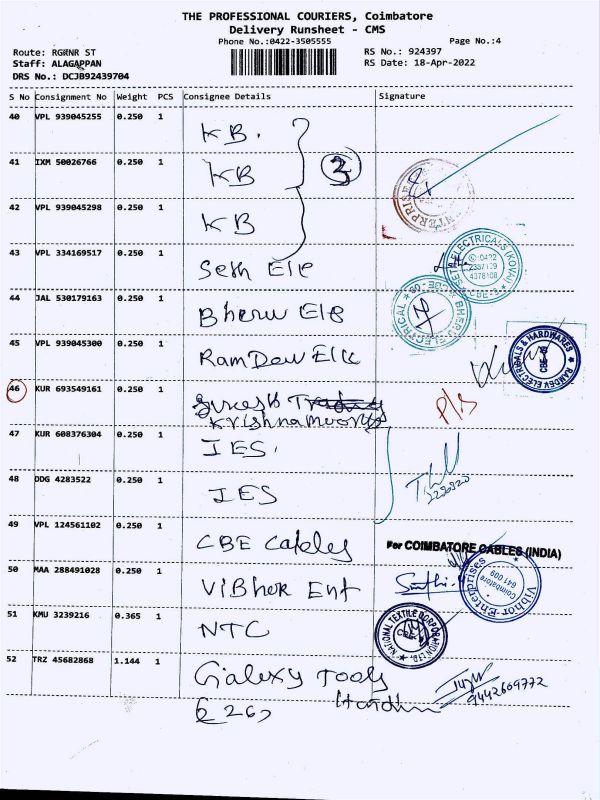 THE PROFESSIONAL COURIERS, Coimbatore
Delivery Runsheet - CMS
Phone No.:0422-3505555
Page No.:4
Route: RGKNR ST
RS No.: 924397
Staff: ALAGAPPAN
RS Date: 18-Apr-2022
DRS No.: DCJB92439704
S No Consignment No Weight PCS Consignee Details Signature
40 VPL 939045255 0.250 1 KB.
41 IXM 50026766 0.250 1 KB 3
42 VPL 939045298 0.250 1 KB
43 VPL 334169517 0.250 1 Seth Ele
44 JAL 530179163 0.250 1 Bheru Ele
45 VPL 939045300 0.250 1 RamDev Elc
46 KUR 693549161 0.250 1 Suresh
Krishnamoorthy
47 KUR 608376304 0.250 1 IES.
48 DDG 4283522 0.250 1 IES
49 VPL 124561102 0.250 1 CBE Cables
For COIMBATORE CABLES (INDIA)
50 MAA 288491028 0.250 1 Vibhor Ent
Vibhor Enterprises
Coimbatore
641 009
51 KMU 3239216 0.365 1 NTC
NATIONAL TEXTILE CORPORATION LTD.
52 TRZ 45682868 1.144 1 Galexy Tools
9442609772